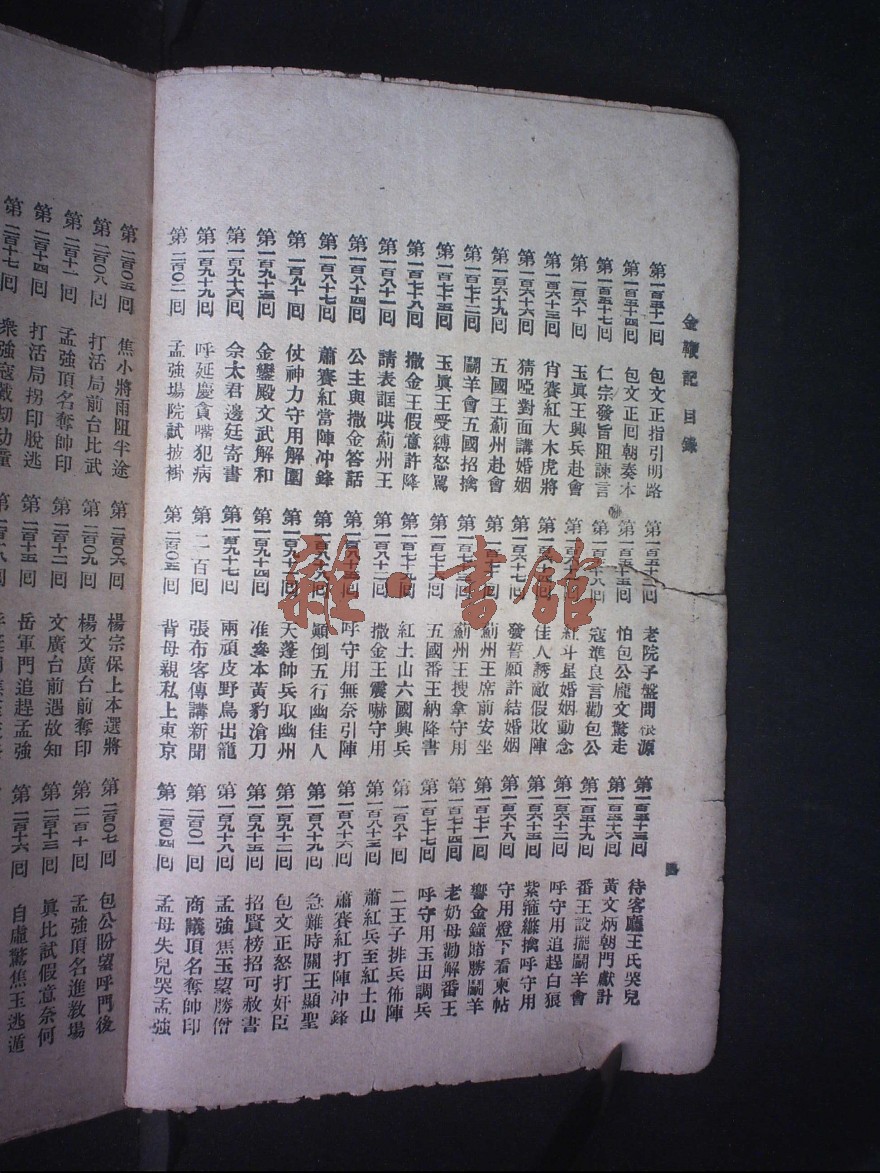 金鞭記 目錄
第一百五十一回 包文正指引明路 第一百五十二回 老院子盤問根源 第一百五十三回 待客廳王氏哭兒
第一百五十四回 包文正回朝奏本 第一百五十五回 怕包公龐文驚走 第一百五十六回 黃文炳朝門獻計
第一百五十七回 仁宗發旨阻諫言 第一百五十八回 寇準良言勸包公 第一百五十九回 番王設擺鬭羊會
第一百六十回 玉眞王興兵赴會 第一百六十一回 紅斗星婚姻動念 第一百六十二回 呼守用追趕白狼
第一百六十三回 肖賽紅大木虎將 第一百六十四回 佳人誘敵假敗陣 第一百六十五回 紫箍縧擒呼守用
第一百六十六回 猜啞對面講婚姻 第一百六十七回 發誓願許結婚姻 第一百六十八回 守用燈下看柬帖
第一百六十九回 五國王薊州赴會 第一百七十回 薊州王席前安坐 第一百七十一回 響金鐘賭勝鬭羊
第一百七十二回 鬭羊會五國招擒 第一百七十三回 薊州王搜拿守用 第一百七十四回 老奶母勸解番王
第一百七十五回 玉眞王受縛怒罵 第一百七十六回 五國番王納降書 第一百七十七回 呼守用玉田調兵
第一百七十八回 撒金王假意許降 第一百七十九回 紅土山六國興兵 第一百八十回 二王子排兵佈陣
第一百八十一回 請表誆哄薊州王 第一百八十二回 撒金王震嚇守用 第一百八十三回 蕭紅兵至紅土山
第一百八十四回 公主與撒金答話 第一百八十五回 呼守用無奈引陣 第一百八十六回 蕭賽紅打陣冲鋒
第一百八十七回 蕭賽紅當陣冲鋒 第一百八十八回 顛倒五行幽佳人 第一百八十九回 急難時關王顯聖
第一百九十回 仗神力守用解圍 第一百九十一回 天蓬帥兵取幽州 第一百九十二回 包文正怒打奸臣
第一百九十三回 金鑾殿文武解和 第一百九十四回 准參本黃豹滄刀 第一百九十五回 招賢榜招可赦書
第一百九十六回 佘太君邊廷寄書 第一百九十七回 兩頑皮野鳥出籠 第一百九十八回 孟強焦玉望勝僧
第一百九十九回 呼延慶貪嘴犯病 第二百回 張布客傳講新聞 第二百〇一回 商議頂名奪帥印
第二百〇二回 孟強場院試披褂 第二百〇三回 背母親私上東京 第二百〇四回 孟母失兒哭孟強
第二百〇五回 焦小將雨阻半途 第二百〇六回 楊宗保上本選將 第二百〇七回 包公盼望呼門後
第二百〇八回 打活局前台比武 第二百〇九回 楊文廣台前奪印 第二百十回 孟強頂名進教場
第二百十一回 孟強頂名奪帥印 第二百十二回 文廣台前遇故知 第二百十三回 眞比試假意奈何
第二百十四回 打活局拐印脫逃 第二百十五回 岳軍門追趕孟強 第二百十六回 自虛驚焦玉逃遁
第二百十七回 衆強寇截刧
雜·書館